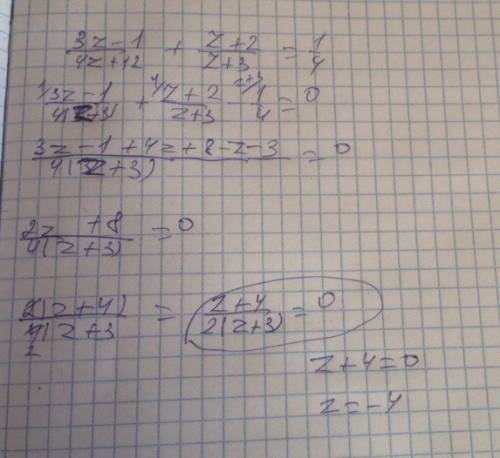 (3z-1)/(4z+12) + (z+2)/(z+3) = 1/4
¹⁾(3z-1)/(4(z+3)) + ⁴⁾(z+2)/(z+3) - ᶻ⁺³⁾1/4 = 0
(3z-1+4z+8-z-3)/(4(z+3)) = 0
(2z +8)/(4(z+3)) = 0
2(z+4)/4(z+3 = (z+4)/(2(z+3)) = 0
2
z+4=0
z=-4